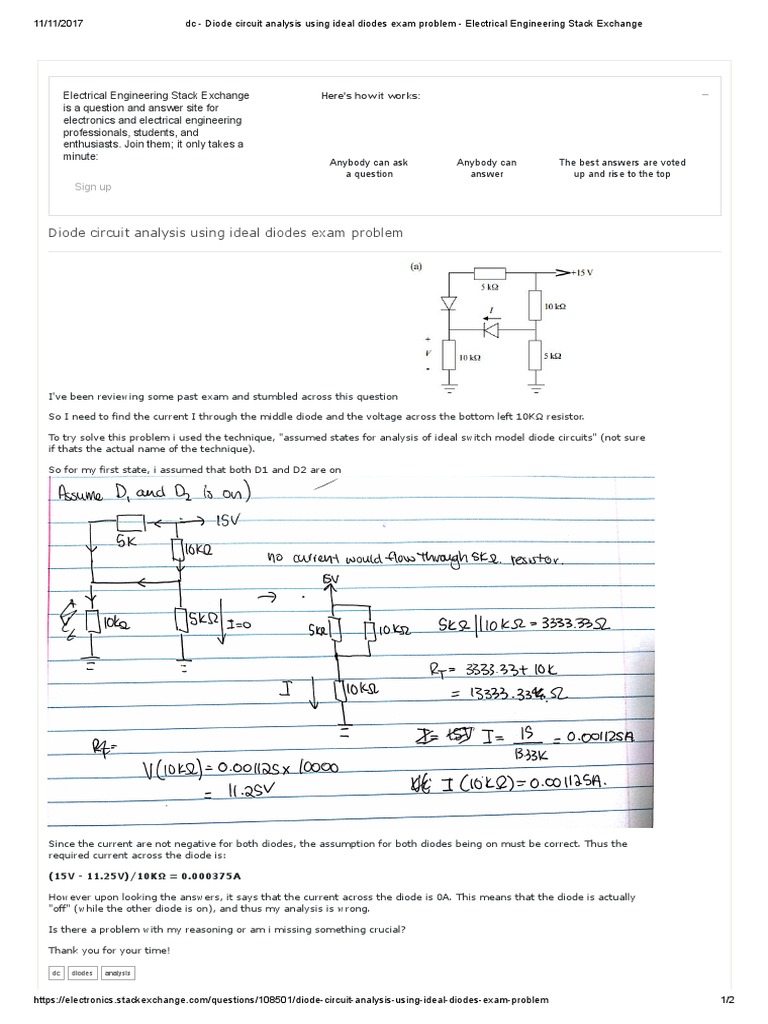 11/11/2017
dc - Diode circuit analysis using ideal diodes exam problem - Electrical Engineering Stack Exchange
Electrical Engineering Stack Exchange
is a question and answer site for
electronics and electrical engineering
professionals, students, and
enthusiasts. Join them; it only takes a
minute:
Sign up
Here's how it works:
Anybody can ask
a question
Anybody can
answer
The best answers are voted
up and rise to the top
Diode circuit analysis using ideal diodes exam problem
(a)
+15 V
5 kΩ
10 kΩ
I
+
V
-
10 kΩ
5 kΩ
I've been reviewing some past exam and stumbled across this question
So I need to find the current I through the middle diode and the voltage across the bottom left 10KΩ resistor.
To try solve this problem i used the technique, "assumed states for analysis of ideal switch model diode circuits" (not sure
if thats the actual name of the technique).
So for my first state, i assumed that both D1 and D2 are on
Assume D1 and D2 is on)
15V
5K
10KΩ
no current would flow through 5KΩ resistor.
10kΩ
5KΩ
I=0
5V
5kΩ
10KΩ
I
10KΩ
5kΩ || 10KΩ = 3333.33Ω
RT = 3333.33 + 10K
= 13333.33Ω
I = 15 / 13.33K = 0.001125A
I (10KΩ) = 0.001125A.
V(10kΩ) = 0.001125 x 10000
= 11.25V
Since the current are not negative for both diodes, the assumption for both diodes being on must be correct. Thus the
required current across the diode is:
(15V - 11.25V)/10KΩ = 0.000375A
However upon looking the answers, it says that the current across the diode is 0A. This means that the diode is actually
"off" (while the other diode is on), and thus my analysis is wrong.
Is there a problem with my reasoning or am i missing something crucial?
Thank you for your time!
dc
diodes
analysis
https://electronics.stackexchange.com/questions/108501/diode-circuit-analysis-using-ideal-diodes-exam-problem
1/2